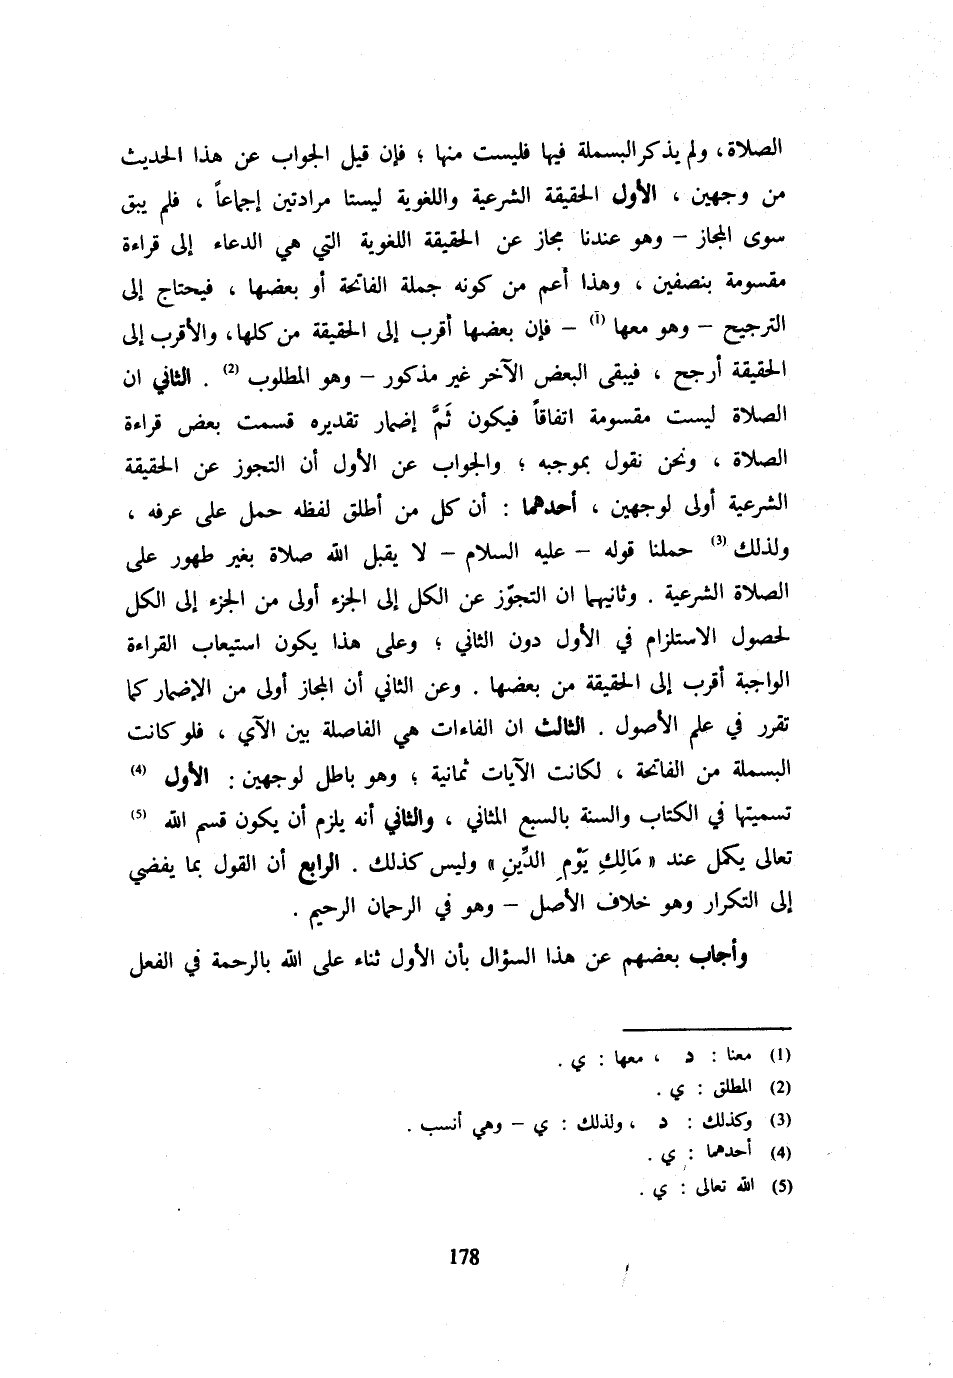 الصلاة، ولم يذكر البسملة فيها فليست منها ؛ فإن قيل الجواب عن هذا الحديث
من وجهين ، الأول الحقيقة الشرعية واللغوية ليستا مرادتين إجماعاً ، فلم يبق
سوى المجاز – وهو عندنا مجاز عن الحقيقة اللغوية التي هي الدعاء إلى قراءة
مقسومة بنصفين ، وهذا أعم من كونه جملة الفاتحة أو بعضها ، فيحتاج إلى
الترجيح – وهو معها (1) – فإن بعضها أقرب إلى الحقيقة من كلها، والأقرب إلى
الحقيقة أرجح ، فيبقى البعض الآخر غير مذكور – وهو المطلوب (2) . الثاني ان
الصلاة ليست مقسومة اتفاقاً فيكون ثَمَّ إضمار تقديره قسمت بعض قراءة
الصلاة ، ونحن نقول بموجبه ؛ والجواب عن الأول أن التجوز عن الحقيقة
الشرعية أولى لوجهين ، أحدهما : أن كل من أطلق لفظه حمل على عرفه ،
ولذلك (3) حملنا قوله – عليه السلام – لا يقبل الله صلاة بغير طهور على
الصلاة الشرعية . وثانيهما ان التجوّز عن الكل إلى الجزء أولى من الجزء إلى الكل
لحصول الاستلزام في الأول دون الثاني ؛ وعلى هذا يكون استيعاب القراءة
الواجبة أقرب إلى الحقيقة من بعضها . وعن الثاني أن المجاز أولى من الإضمار كما
تقرر في علم الأصول . الثالث ان الفاءات هي الفاصلة بين الآي ، فلو كانت
البسملة من الفاتحة ، لكانت الآيات ثمانية ؛ وهو باطل لوجهين : الأول (4)
تسميتها في الكتاب والسنة بالسبع المثاني ، والثاني أنه يلزم أن يكون قسم الله (5)
تعالى يكمل عند « مَالِكِ يَوْمِ الدِّينِ » وليس كذلك . الرابع أن القول بما يفضي
إلى التكرار وهو خلاف الأصل – وهو في الرحمان الرحيم .
وأجاب بعضهم عن هذا السؤال بأن الأول ثناء على الله بالرحمة في الفعل
(1) معنا : د ، معها : ي .
(2) المطلق : ي .
(3) وكذلك : د ، ولذلك : ي – وهي أنسب .
(4) أحدهما : ي .
(5) الله تعالى : ي .
178